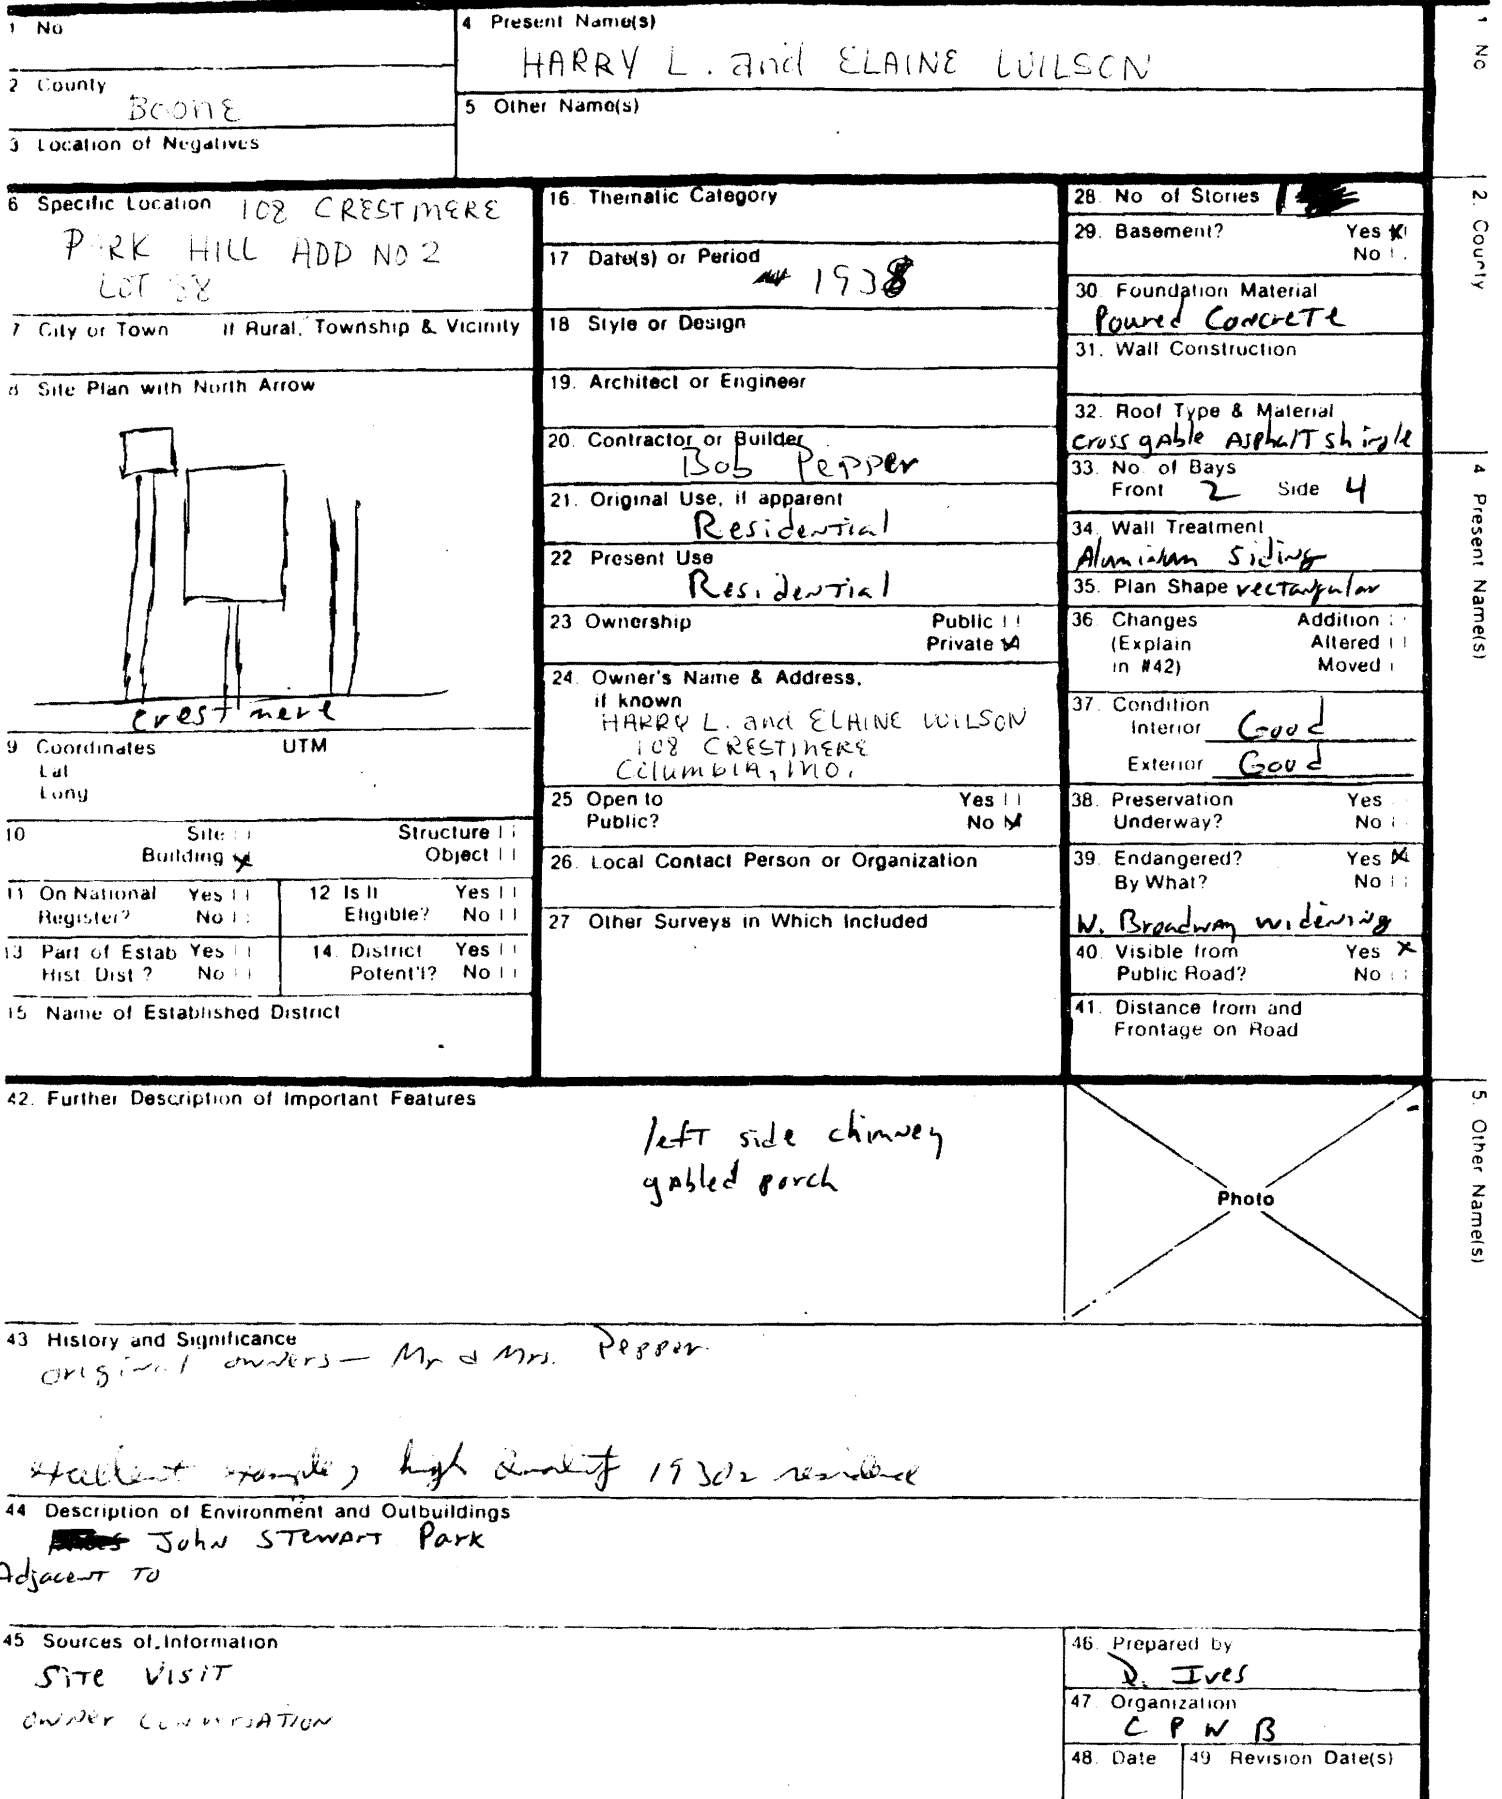 1 No
4 Present Name(s)
HARRY L. and ELAINE WILSON
2 County
BOONE
5 Other Name(s)
3 Location of Negatives
6 Specific Location 108 CRESTMERE
PARK HILL ADD NO 2
LOT
7 City or Town If Rural, Township & Vicinity
8 Site Plan with North Arrow
crestmere
9 Coordinates UTM
Lat
Long
10 Site Structure
Building x Object
11 On National Register? Yes No
12 Is It Eligible? Yes No
13 Part of Estab Hist. Dist.? Yes No
14. District Potent'l? Yes No
15 Name of Established District
16. Thematic Category
17 Date(s) or Period
1938
18 Style or Design
19. Architect or Engineer
20. Contractor or Builder
Bob Pepper
21. Original Use, if apparent
Residential
22 Present Use
Residential
23 Ownership Public
Private x
24. Owner's Name & Address,
if known
HARRY L. and ELAINE WILSON
108 CRESTMERE
Columbia, MO.
25 Open to Yes
Public? No x
26. Local Contact Person or Organization
27 Other Surveys in Which Included
28. No of Stories 1
29. Basement? Yes x
No
30. Foundation Material
Poured Concrete
31. Wall Construction
32. Roof Type & Material
cross gable Asphalt shingle
33. No. of Bays
Front 2 Side 4
34. Wall Treatment
Aluminum Siding
35. Plan Shape rectangular
36. Changes Addition
(Explain Altered
in #42) Moved
37. Condition
Interior Good
Exterior Good
38. Preservation Yes
Underway? No
39. Endangered? Yes x
By What? No
W. Broadway widening
40. Visible from Yes x
Public Road? No
41. Distance from and
Frontage on Road
42. Further Description of Important Features
left side chimney
gabled porch
Photo
43 History and Significance
original owners — Mr & Mrs. Pepper.
excellent example, high quality 1930s residence
44 Description of Environment and Outbuildings
John Stewart Park
Adjacent to
45 Sources of Information
Site Visit
owner conversation
46. Prepared by
D. Ives
47. Organization
C P W B
48. Date
49 Revision Date(s)
1 No
2. County
4 Present Name(s)
5. Other Name(s)